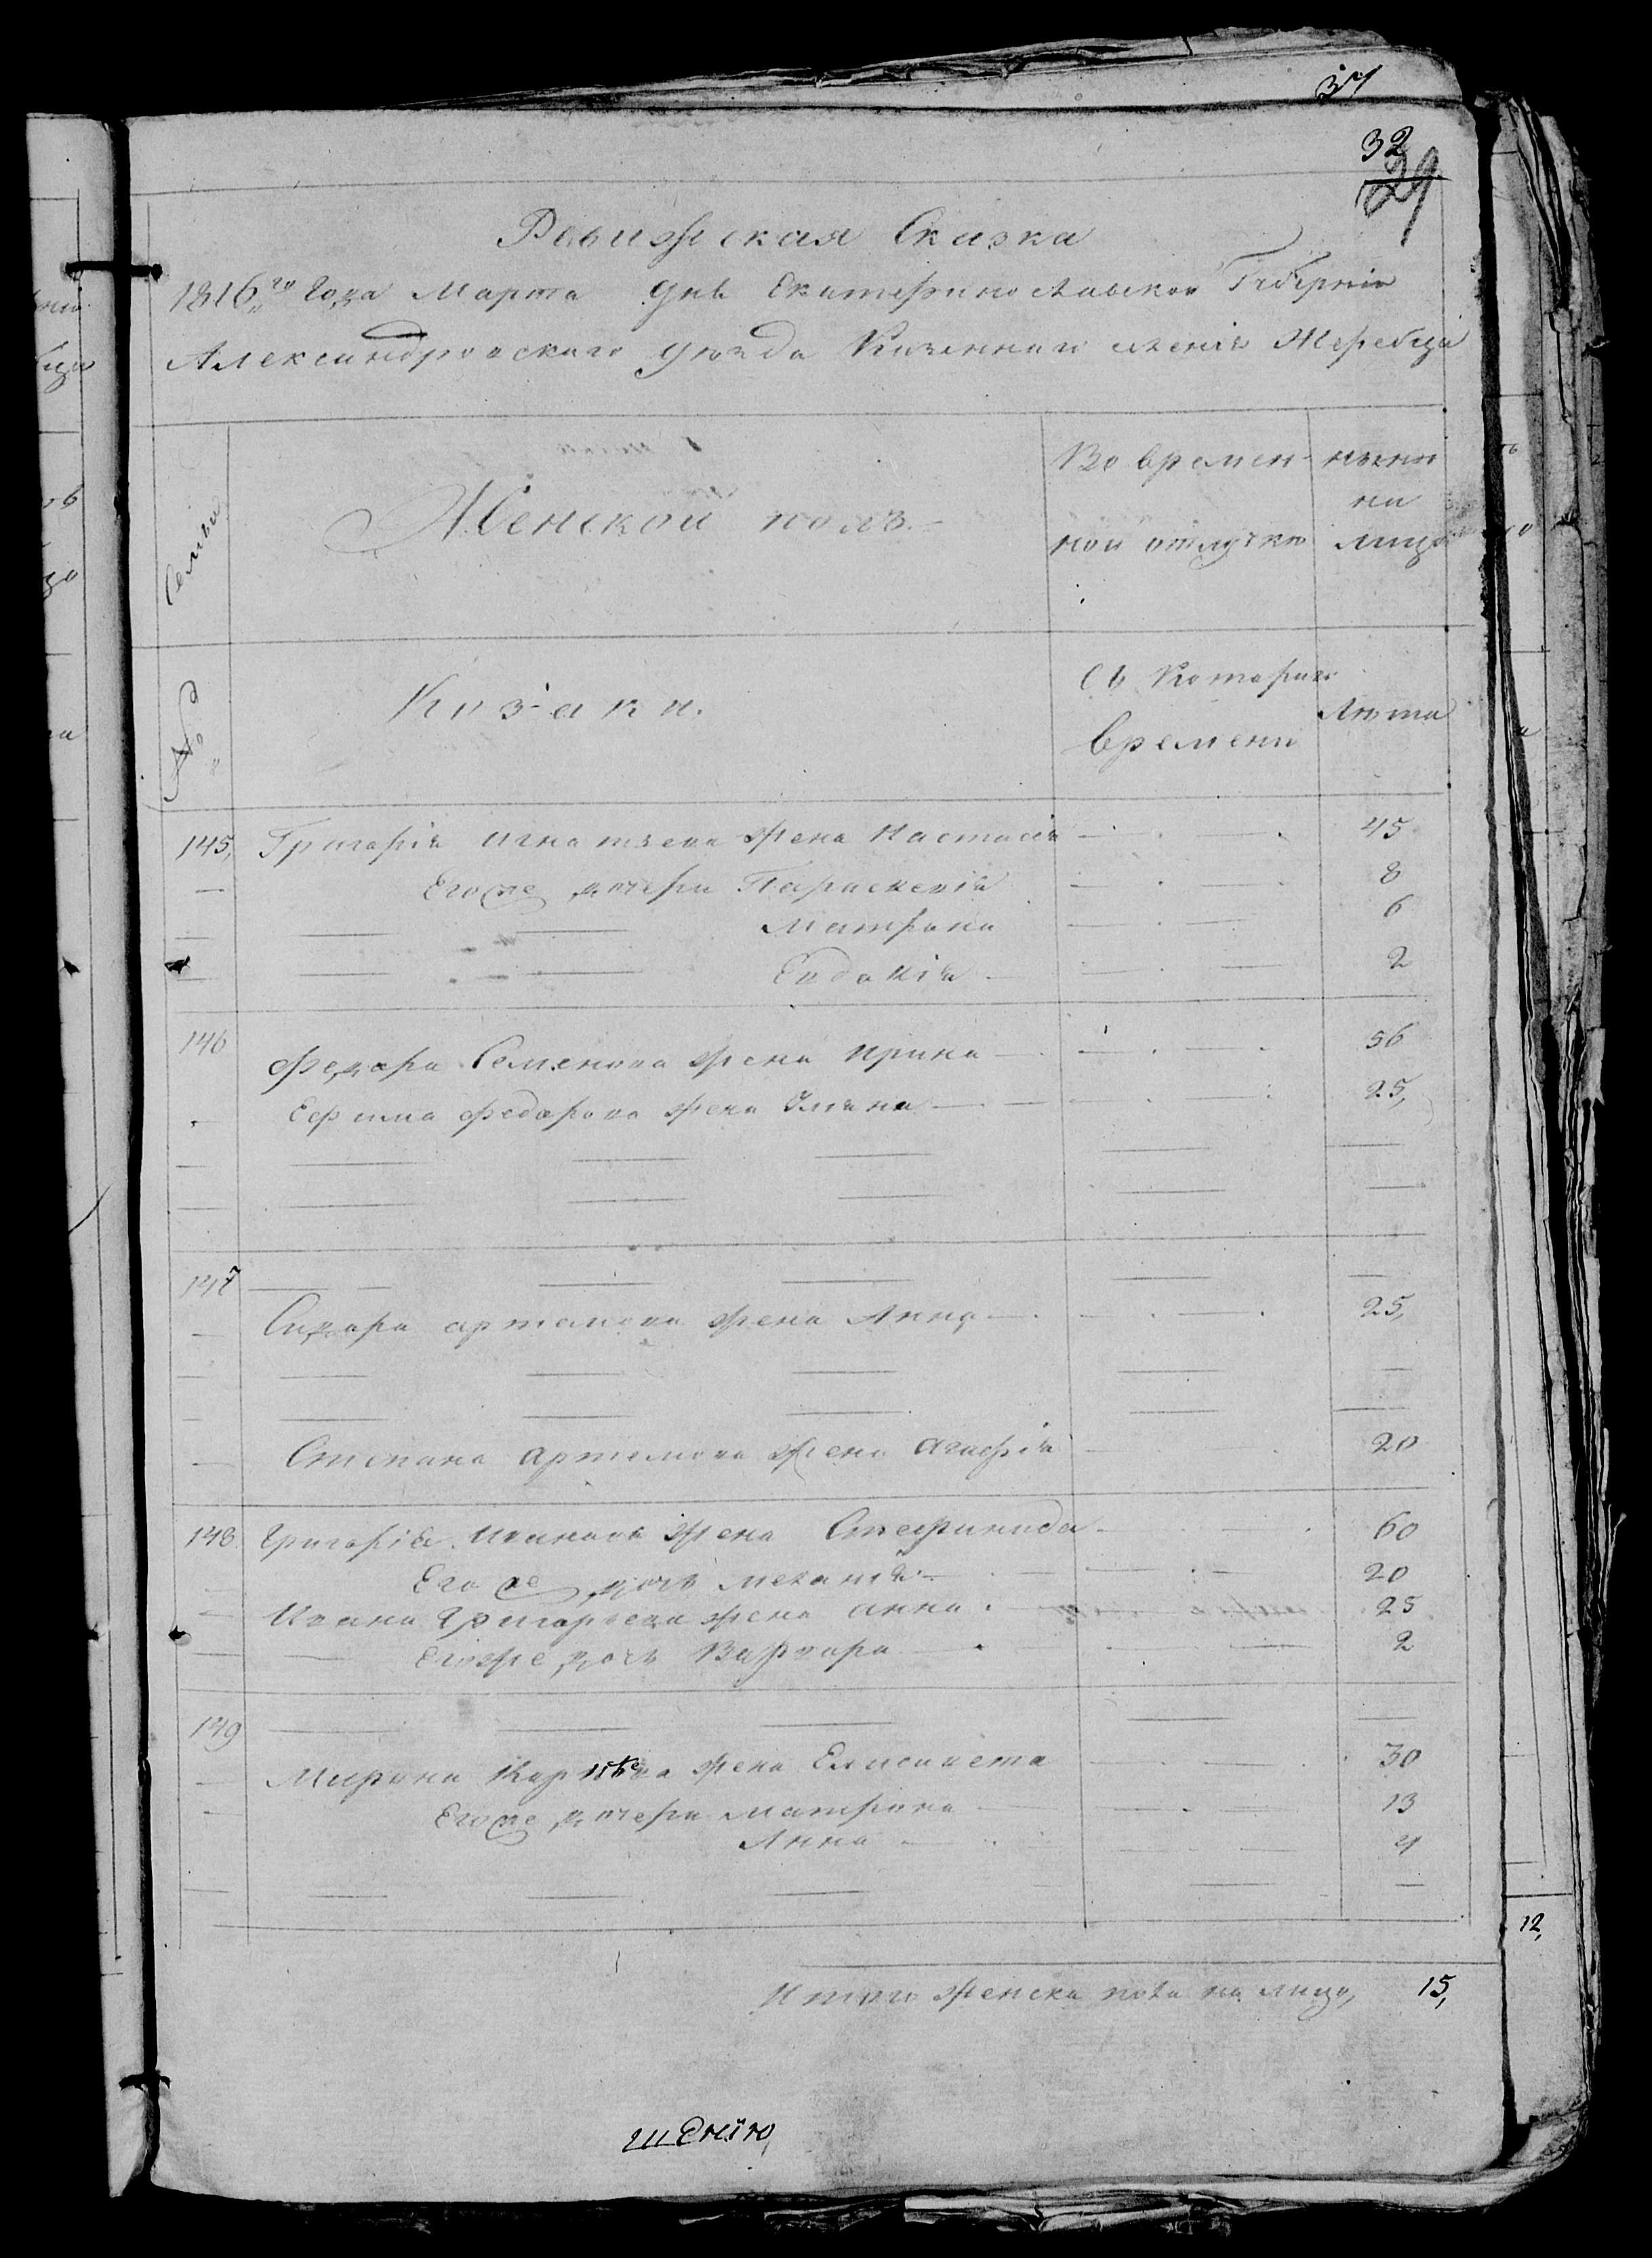 37
32
29
Ревижская Сказка
1816го Года Марта дня Екатеринославской Губерніи
Александровскаго уезда Казеннаго селенія Жеребца
Семьи
Женской полъ
Во времен- ныне
на
ной отлучке лицо
№
Козаки.
Съ Котораго
Времени
Лета
145, Григорія Игнатьева жена Настасія 45
Егоже дочери Параскевія 8
Матрона 6
Евдокія 2
146 Федора Семенова жена Ирина 56
Ефима Федорова жена Ульяна 25,
147
Сидора Артемова жена Анна 25,
Степана Артемова жена Агафія 20
148 Григорія Иванова жена Стефанида 60
Егоже дочь Меланія 20
Ивана Григорьева жена Анна 25
Егоже дочь Варвара 2
149
Мирона жена Елисавета 30
Егоже дочери Матрона 13
Анна 4
Итого женска пола на лицо, 15,
12,